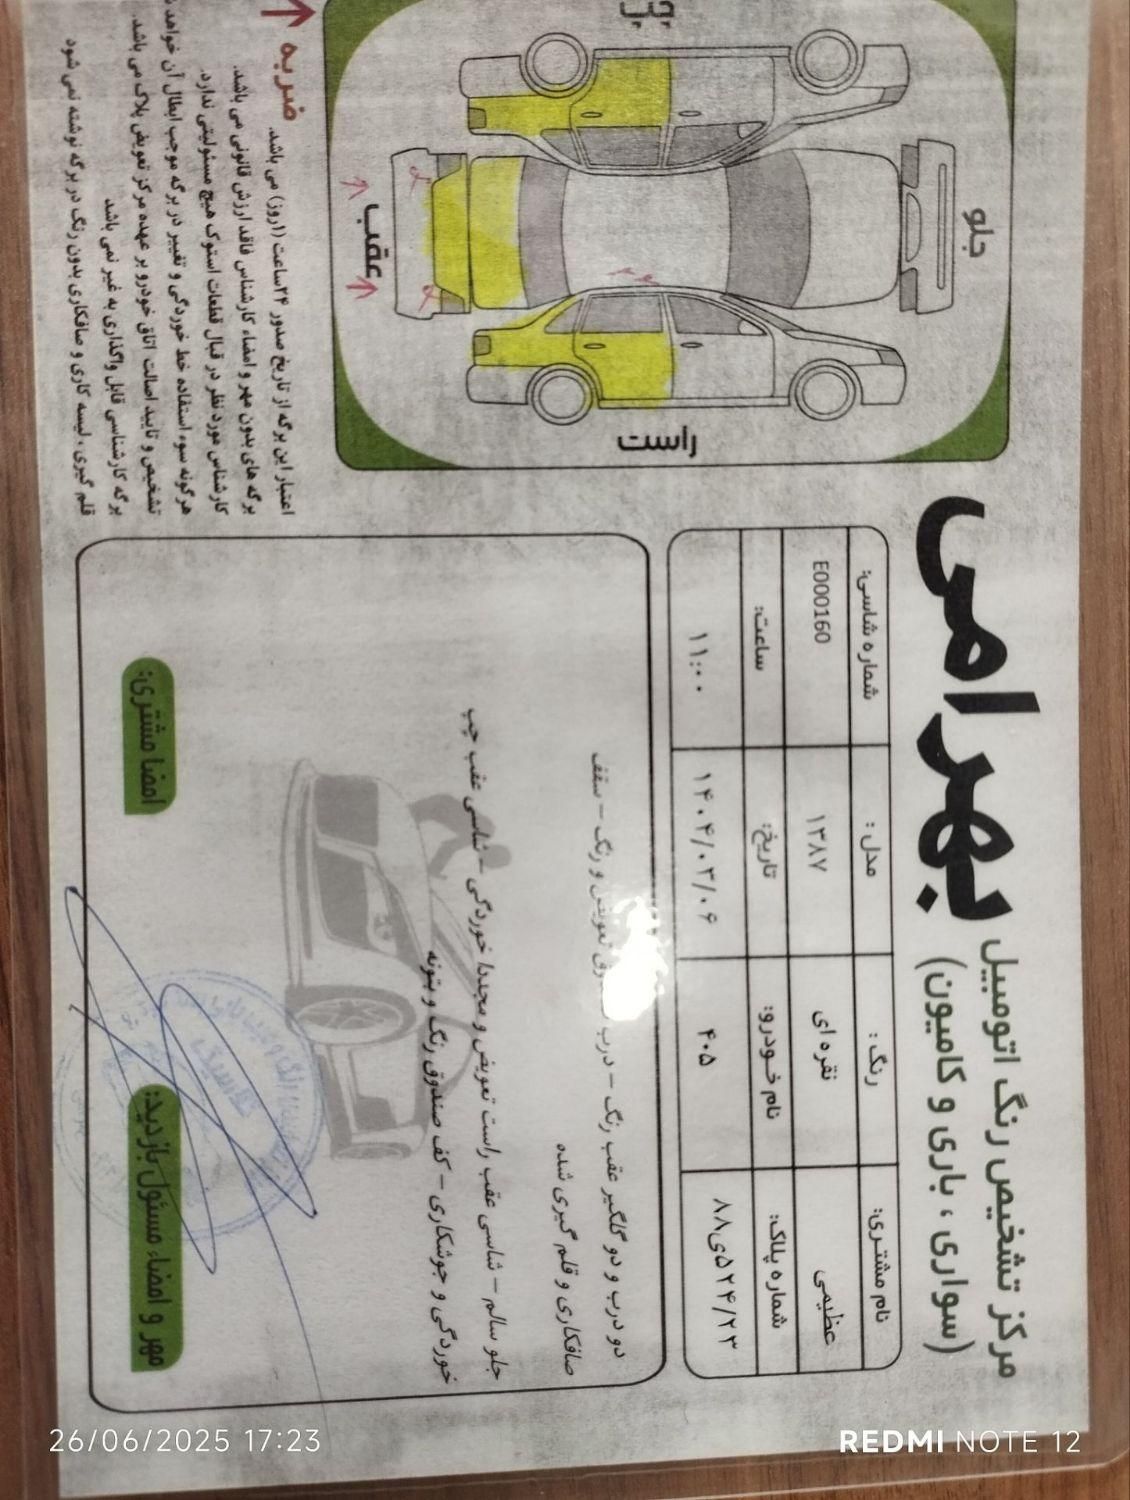 بهرامی
مرکز تشخیص رنگ اتومبیل
(سواری ، باری و کامیون)
نام مشتری: رنگ : مدل : شماره شاسی:
عظیمی نقره ای ۱۳۸۷ E000160
شماره پلاک: نام خودرو: تاریخ: ساعت:
۸۸ی۵۲۴/۲۳ ۴۰۵ ۱۴۰۴/۰۳/۰۶ ۱۱:۰۰
دو درب و دو گلگیر عقب رنگ – درب تعویض و رنگ – سقف
صافکاری و قلم گیری شده
جلو سالم – شاسی عقب راست تعویض و مجددا خوردگی – شاسی عقب چپ
خوردگی و جوشکاری – کف صندوق رنگ و بتونه
مهر و امضاء مسئول بازدید:
امضا مشتری:
جلو
راست
عقب
چپ
ضربه
اعتبار این برگه از تاریخ صدور ۲۴ساعت (۱روز) می باشد.
برگه های بدون مهر و امضاء کارشناس فاقد ارزش قانونی می باشد.
کارشناس مورد نظر در قبال قطعات استوک هیچ مسئولیتی ندارد.
هرگونه سوء استفاده خط خوردگی و تغییر در برگه موجب ابطال آن خواهد
تشخیص و تایید اصالت اتاق خودرو بر عهده مرکز تعویض پلاک می باشد.
برگه کارشناسی قابل واگذاری به غیر نمی باشد
قلم گیری ، لیسه کاری و صافکاری بدون رنگ در برگه نوشته نمی شود
26/06/2025 17:23
REDMI NOTE 12